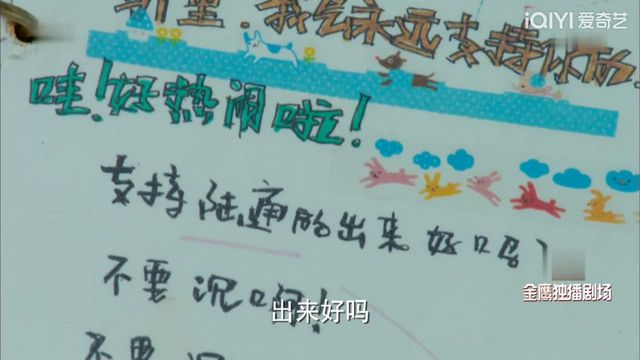 iQIYI 爱奇艺
斯里,我会永远支持你的
哇!好热闹啦!
支持陆通的出来好吗?
不要沉啊!
金鹰独播剧场
出来好吗
不要沉